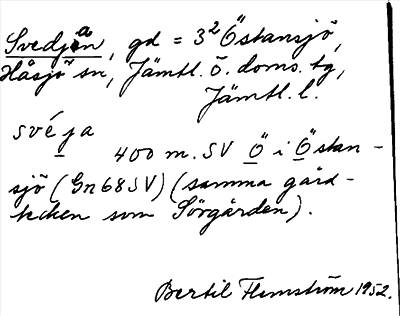 Svedjan, gd = 3² Östansjö,
Håsjö sn, Jämtl. ö. doms. tg,
Jämtl. l.
svéja
400 m. SV Ö i Östan-
sjö (Gn68SV) (samma gård-
tecken som Sörgården).
Bertil Flemström 1952.